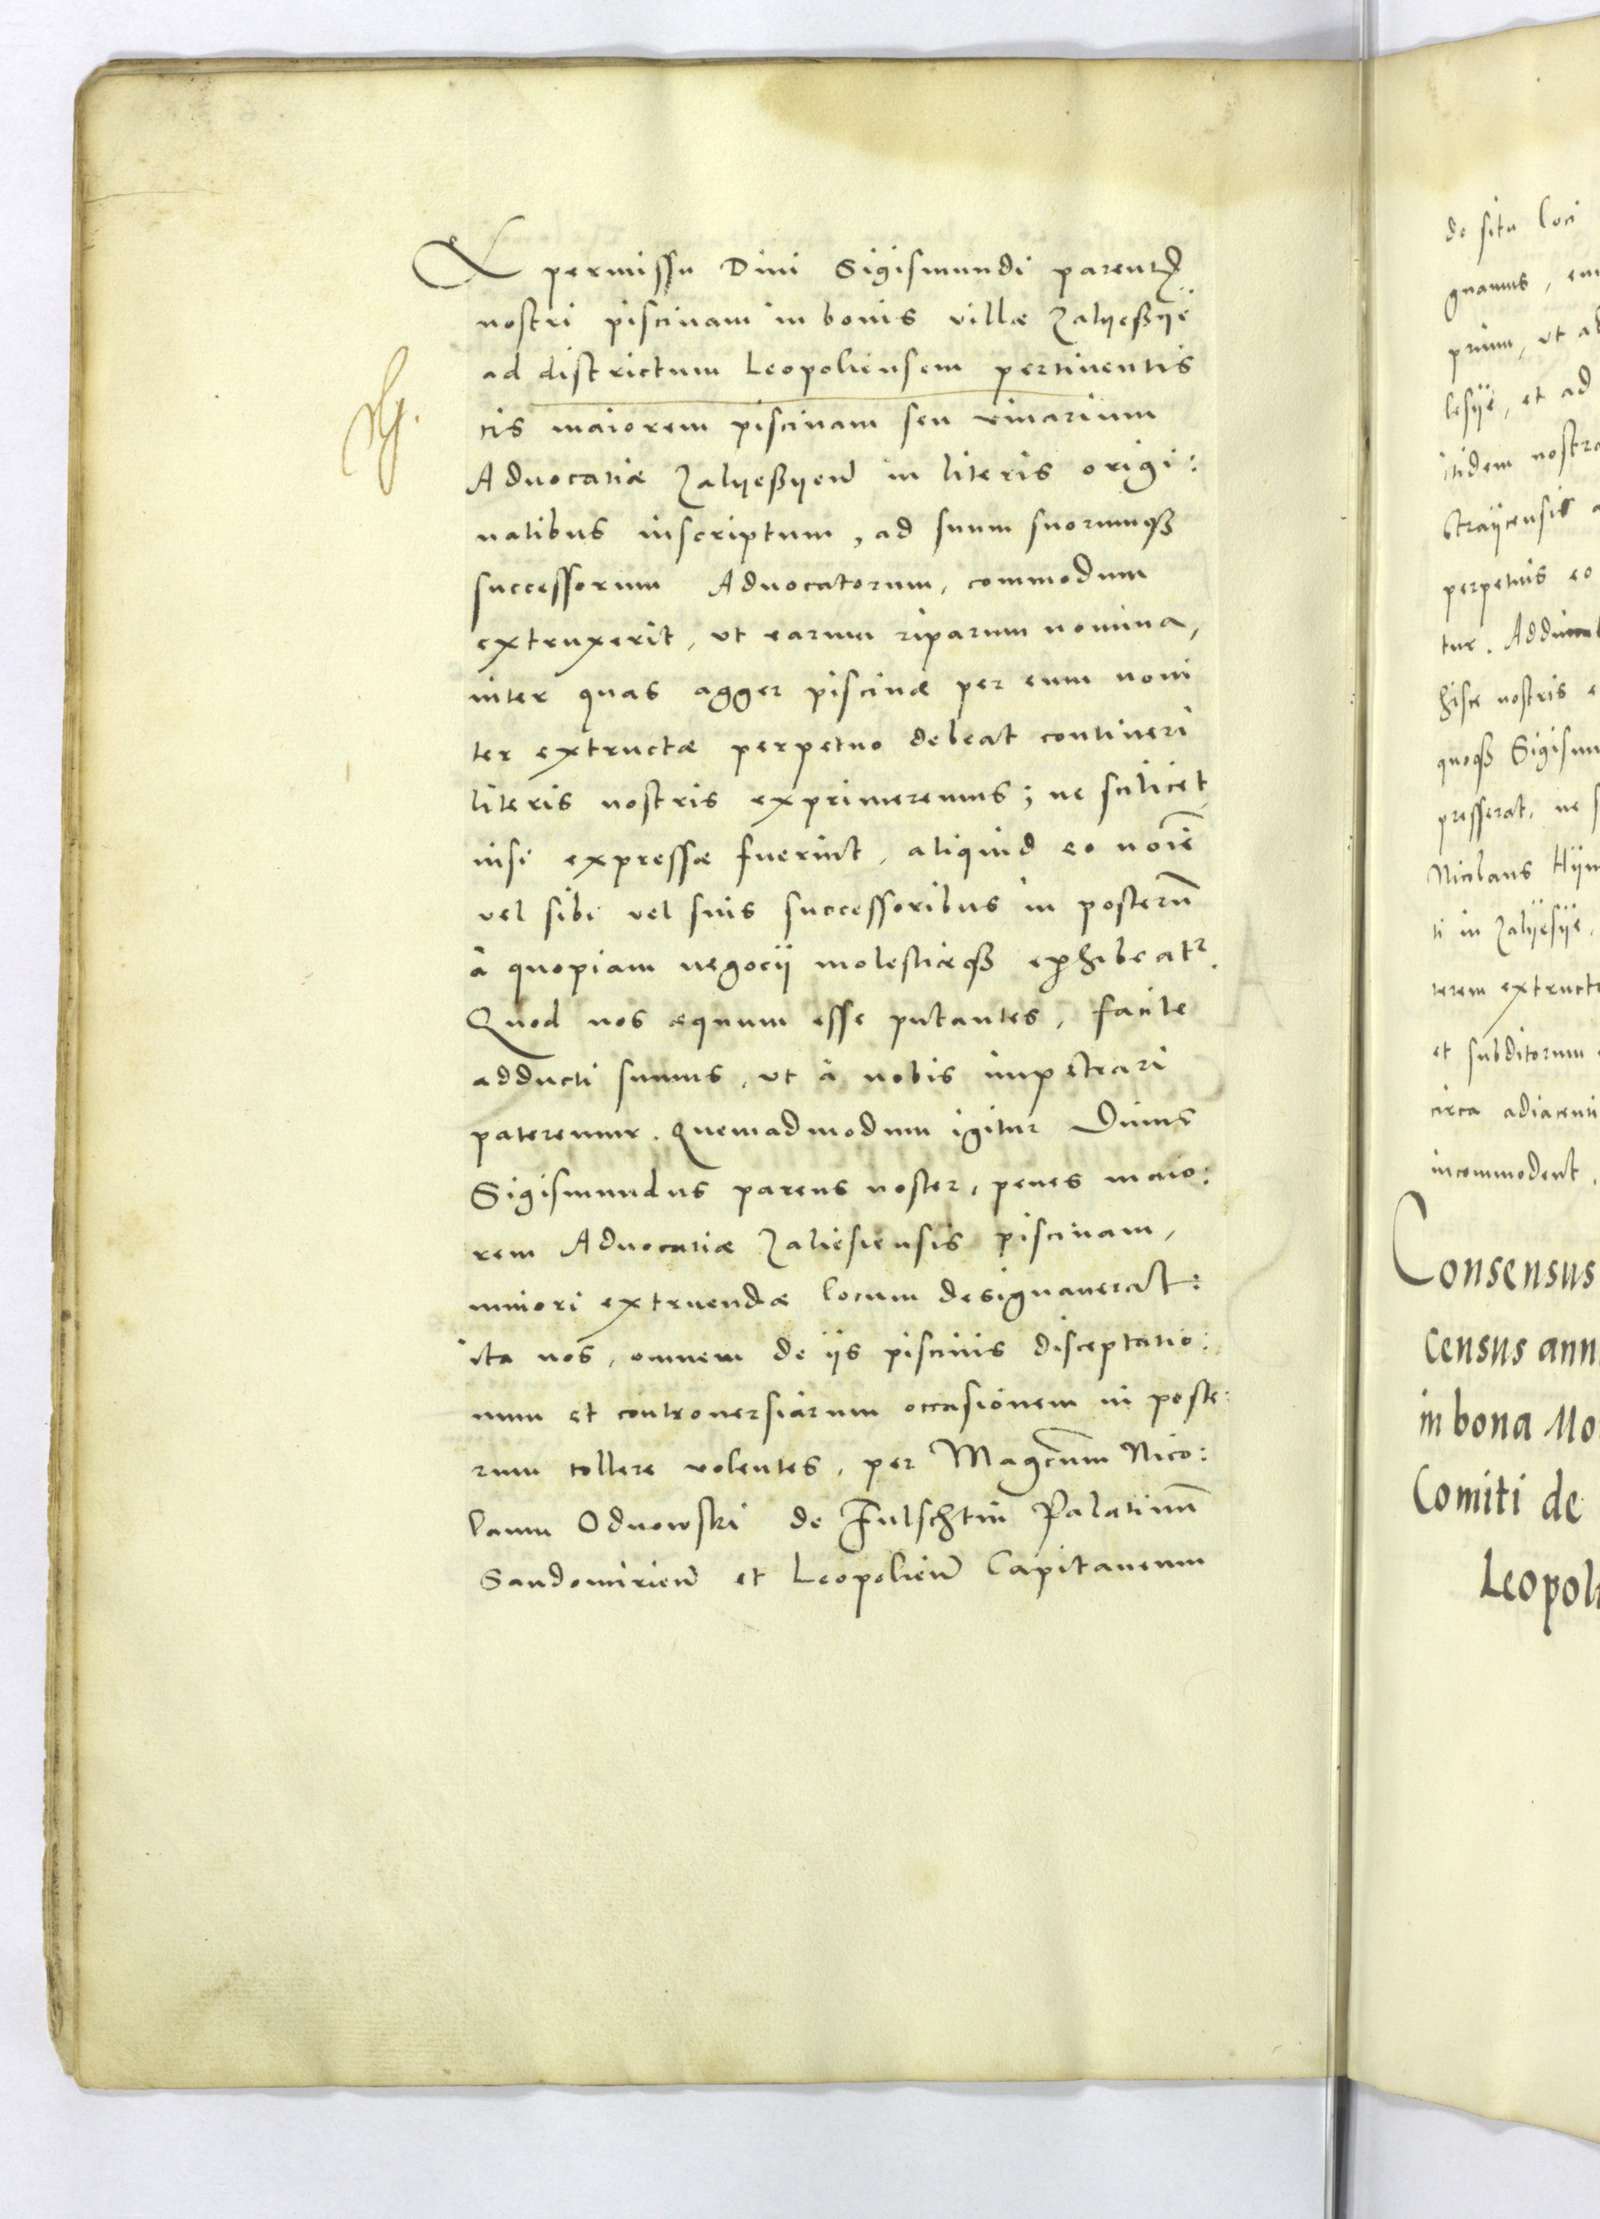 Ex permissu Diui Sigismundi parentis
nostri piscinam in bonis villæ Zalyeßÿe
ad districtum Leopoliensem pertinentis
cis maiorem piscinam seu viuarium
Aduocatiæ Zalyeßyeñ in literis origi:
nalibus inscriptum, ad suum suorumqȝ
successorum Aduocatorum, commodum
extruxerit, vt earum riparum nomina,
inter quas agger piscinæ per eum noui
ter extructæ perpetuo debeat contineri
literis nostris exprimeremus; ne scilicet,
nisi expressæ fuerint, aliquid eo noīe
vel sibi vel suis successoribus in posterū
à quopiam negocij molestiæqȝ exhibeatr.
Quod nos æquum esse putantes, facile
adducti sumus, vt à nobis impetrari
pateremur. Quemadmodum igitur Diuus
Sigismundus parens noster, penes maio:
rem Aduocatiæ Zaliesiensis piscinam,
minori extruendæ locum designauerat:
ita nos, omnem de ijs piscinis disceptatio:
num et controuersiarum occasionem in poste:
rum tollere volentes, per Magcūm Nico:
laum Odnowski de Fulschtin Palatinū
Sandomirieñ et Leopolieñ Capitaneum
de situ loci
lesÿe, et ad
itidem nostra
perpetuis eo
tur.
hisce nostris
quoqȝ
presserat, ne
Nicolaus
ti in Zalÿesÿe,
et subditorum
circa
incommodent,
Consensus
census
in bona
Comiti de